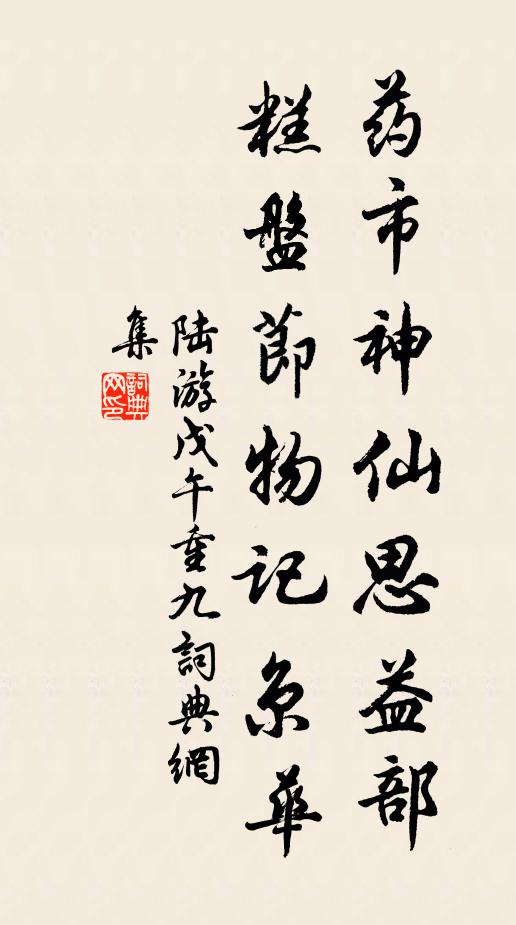 药市神仙思益部
糕盤節物記京華
陆游戊午重九詞典網
集
詞典
网印